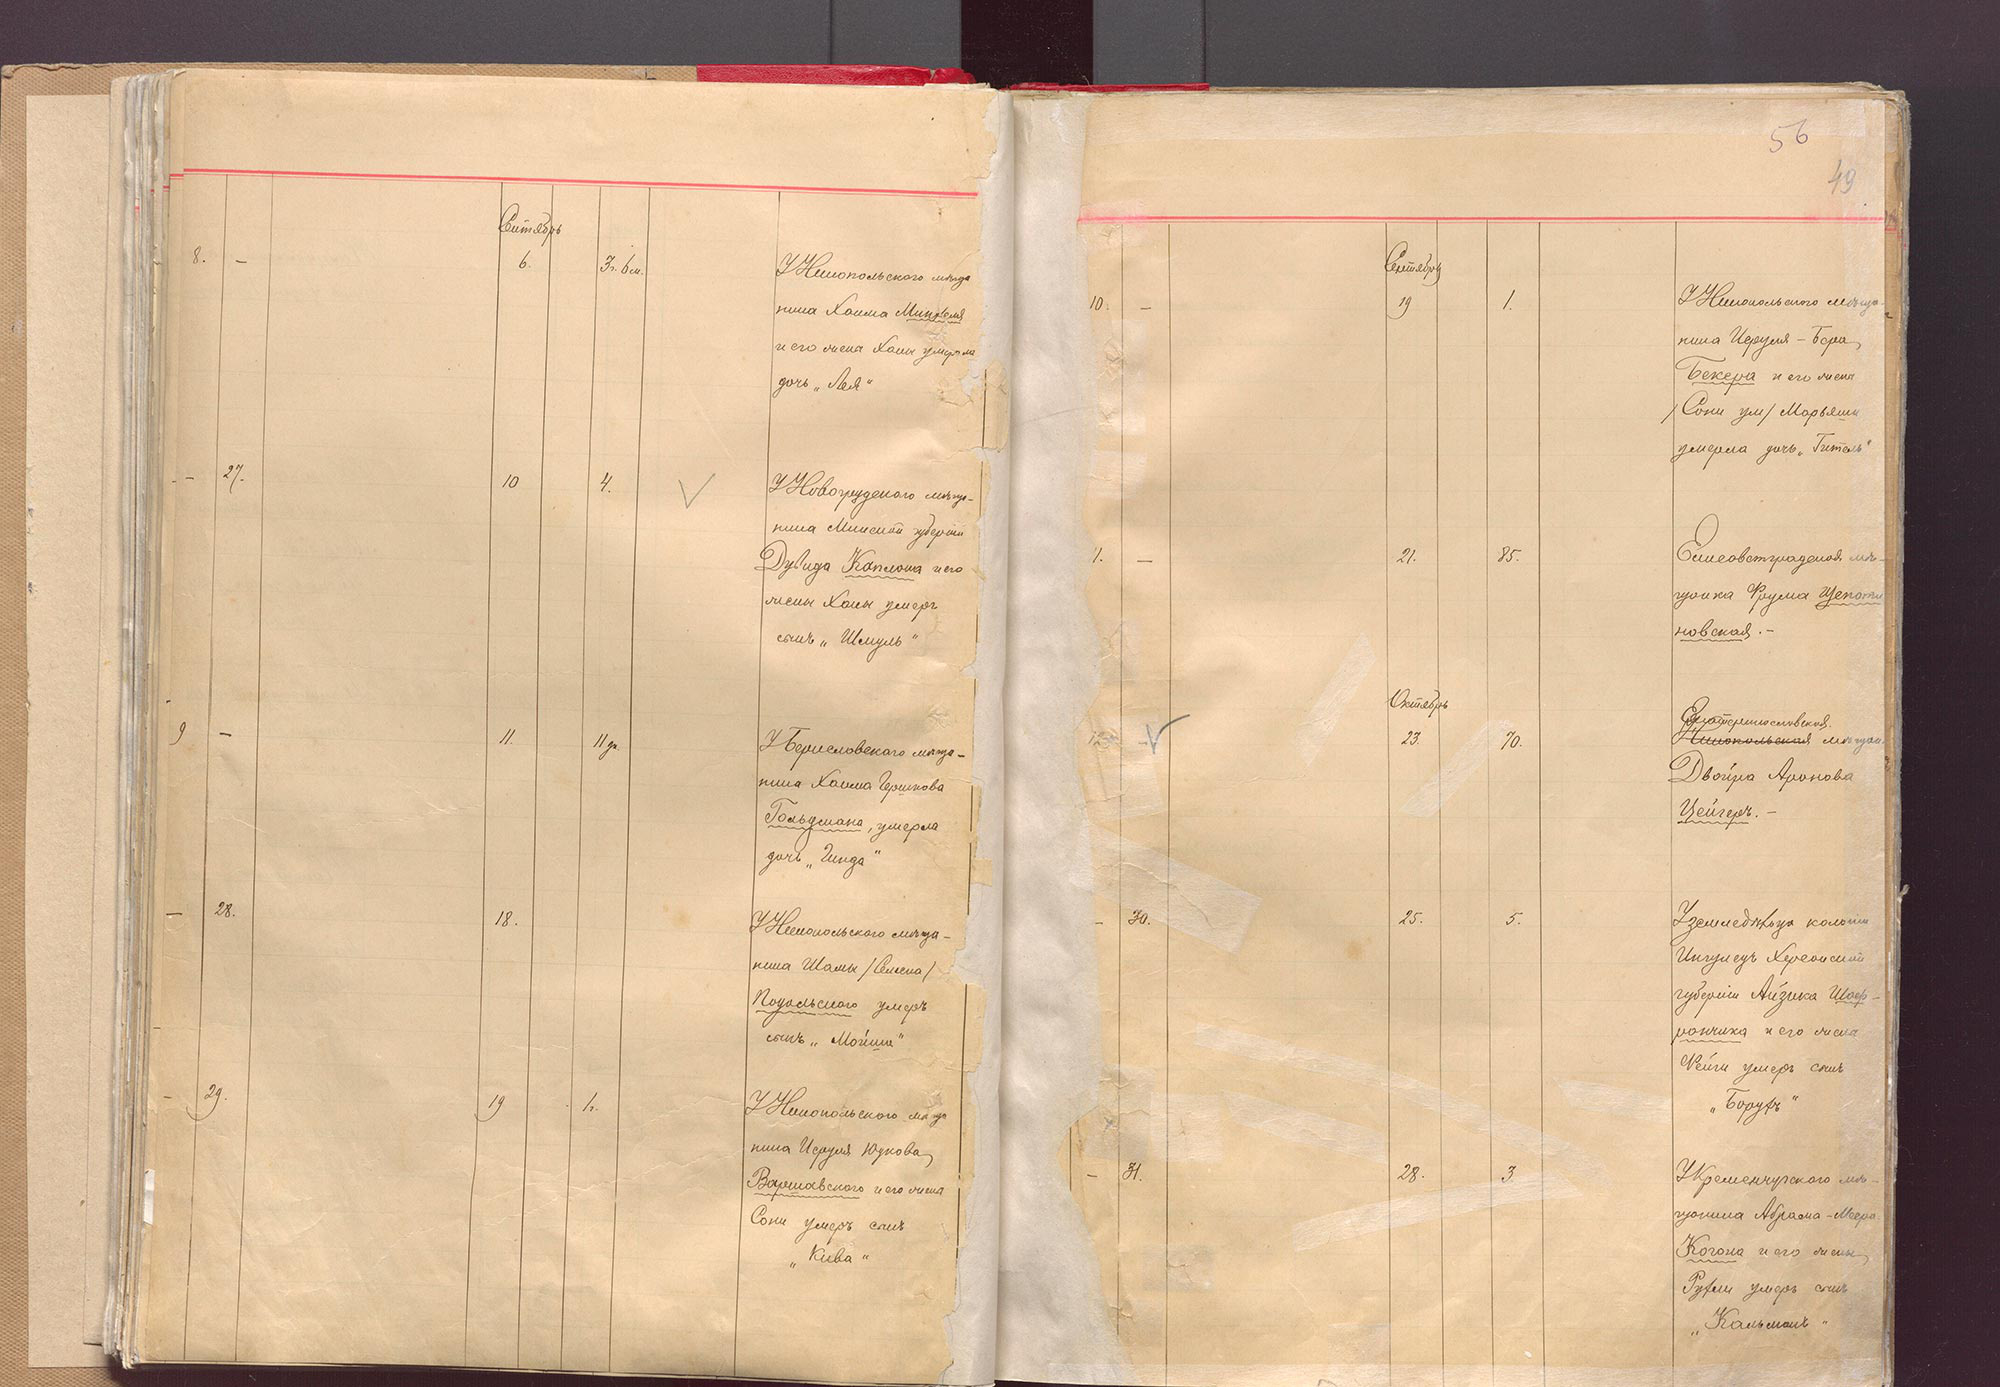 Сентябрь
8. — 6. 3г. 6 м. У Никопольского меща
нина Хаима Минделя
и его жены Ханы умерла
дочь „Лея“
— 27. 10 4. У Новогрудского меща-
нина Минской губернiи
Дувида Каплана и его
жены Ханы умеръ
сынъ „Шмуль“
9 — 11. 11 дн. У Бериславского меща-
нина Хаима Гершкова
Гольдмана, умерла
дочь „Гинда“
— 28. 18. У Никопольского меща-
нина Шамы /Семена/
Подольского умеръ
сынъ „Мойше“
— 29. 19 1г. У Никопольского меща
нина Исруля Юдкова
Варшавского и его жены
Сони умеръ сынъ
„Кива“
56
49
Сентябрь
10. — 19 1. У Никопольского меща-
нина Исруля-Бера
Бекера и его жены
/Сони ум/ Марьяши
умерла дочь „Гитель“
1. — 21. 85. Елисаветградская мѣ-
щанка Фрума
новская. —
Октябрь
Екатеринославская
12 — 23. 70. Никопольская мещан.
Двойра Аронова
Цейгеръ. —
— 30. 25. 5. У земледѣльца колонiи
Ингулецъ Херсонской
губернiи Айзика Шаф-
рончика и его жены
Фейги умеръ сынъ
„Борухъ“
— 31. 28. 3. У Кременчугского мѣ-
щанина Абрама-Меера
Когона и его жены
Рухли умеръ сынъ
„Кальманъ“